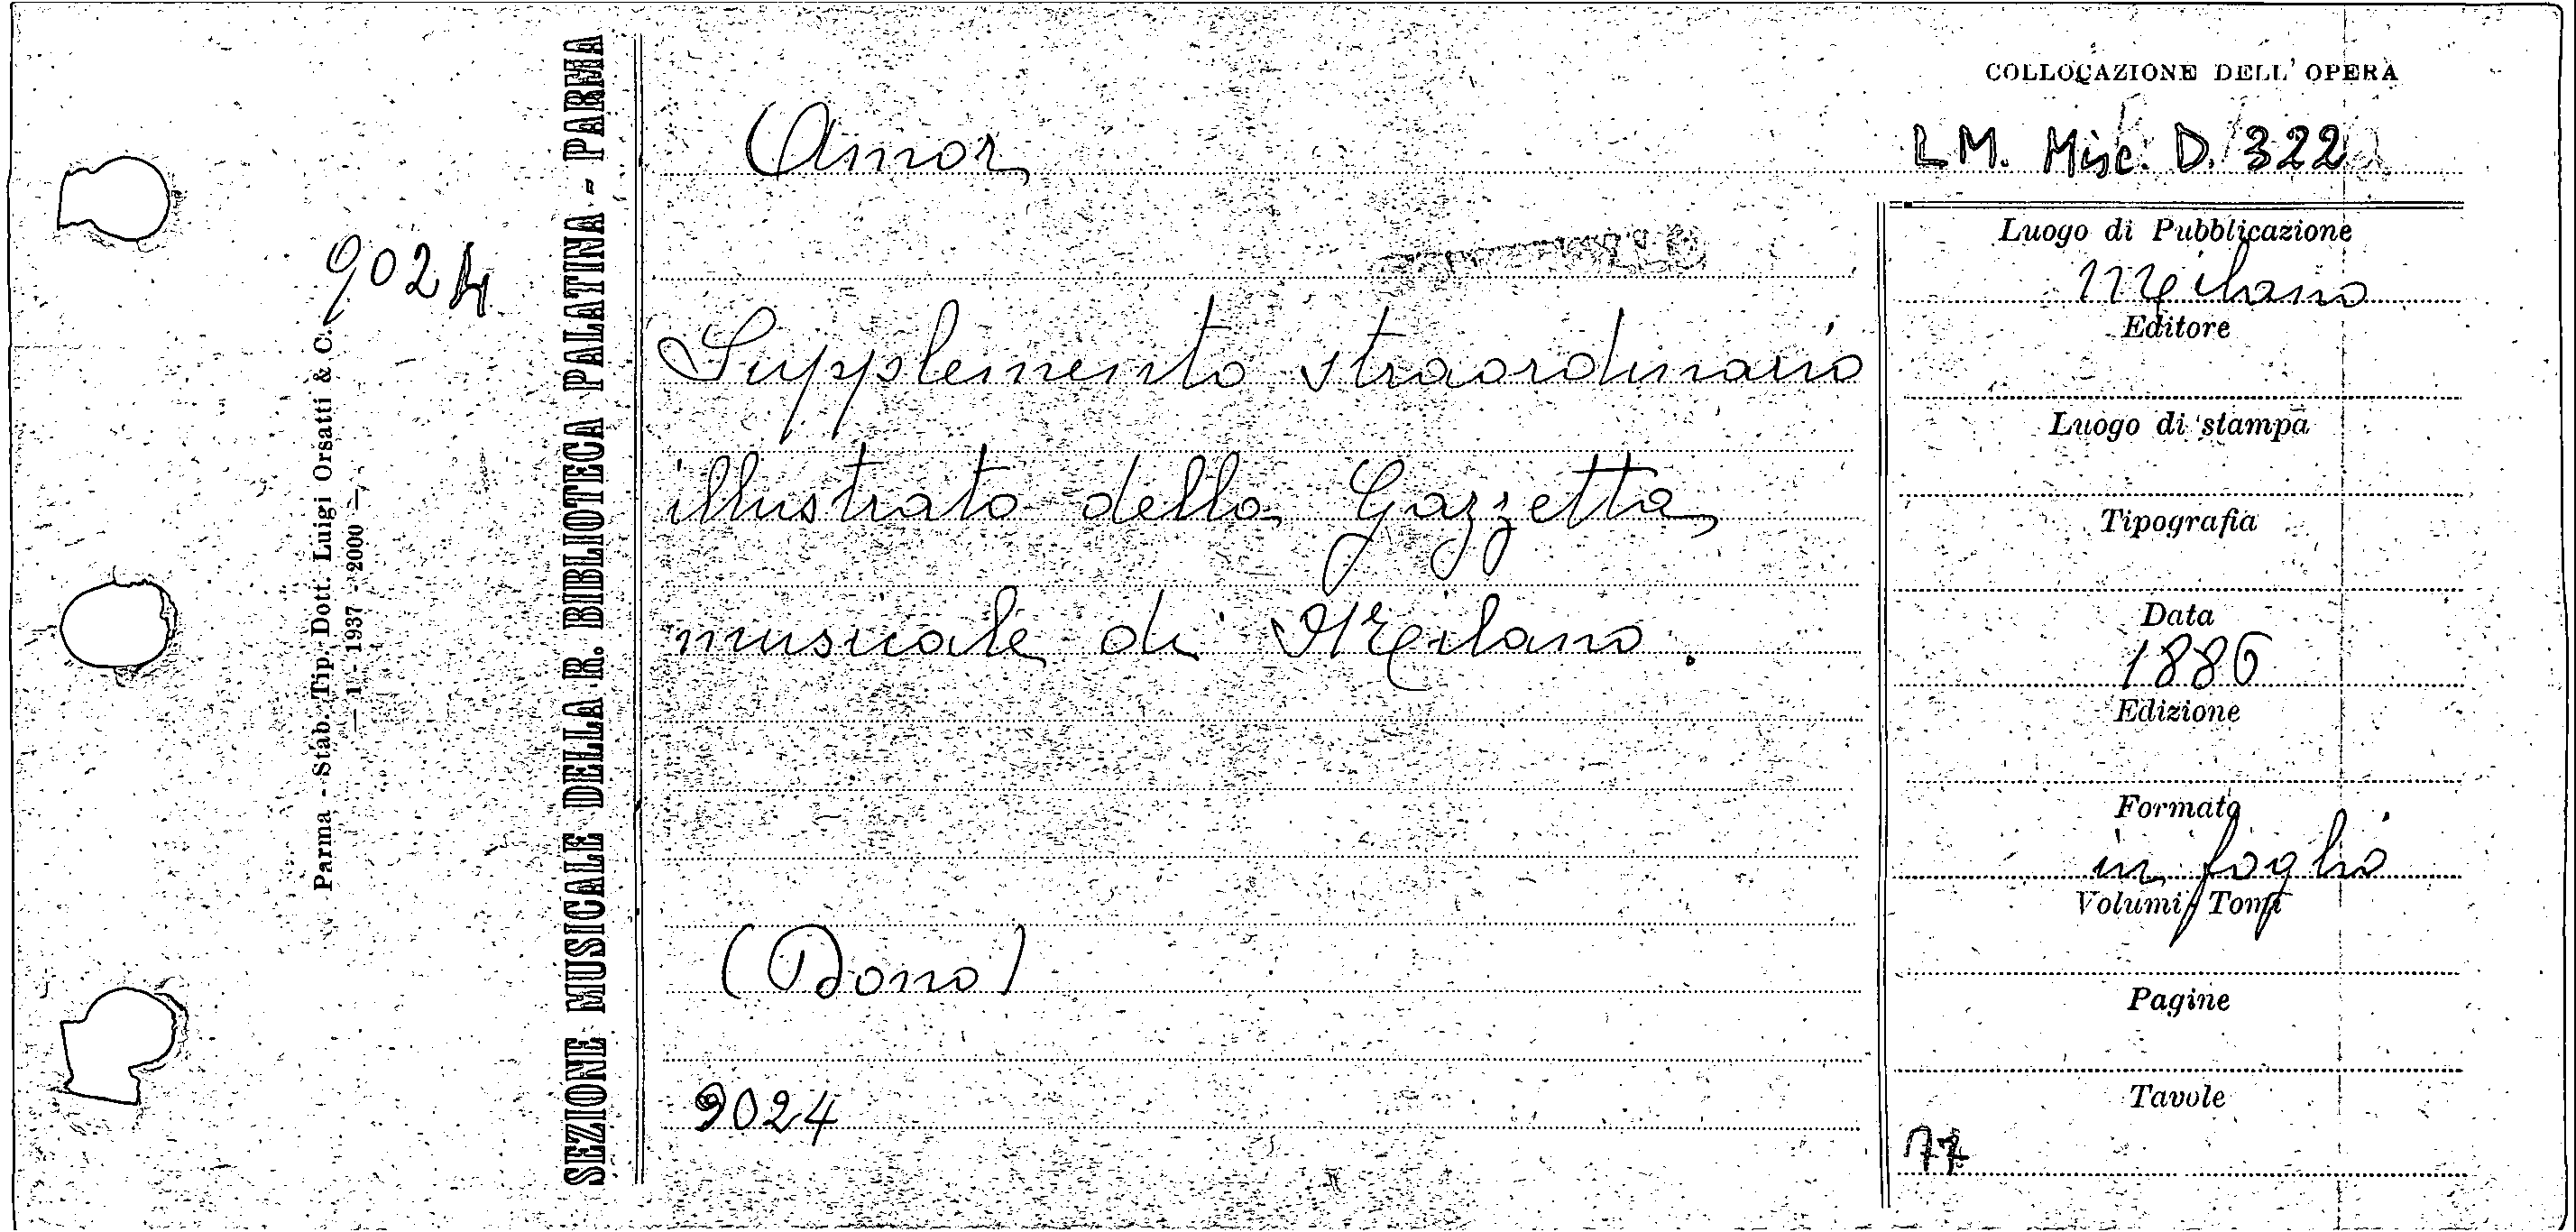 9024
Parma - Stab. Tip. Dott. Luigi Orsatti & C.
— 1 - 1937 - 2000 —
SEZIONE MUSICALE DELLA R. BIBLIOTECA PALATINA - PARMA
Amor
Supplemento straordinario
illustrato della Gazzetta
musicale di Milano.
(Dono)
9024
COLLOCAZIONE DELL' OPERA
LM. Misc. D. 322
Luogo di Pubblicazione
Milano
Editore
Luogo di stampa
Tipografia
Data
1886
Edizione
Formato
in foglio
Volumi, Tomi
Pagine
Tavole
77